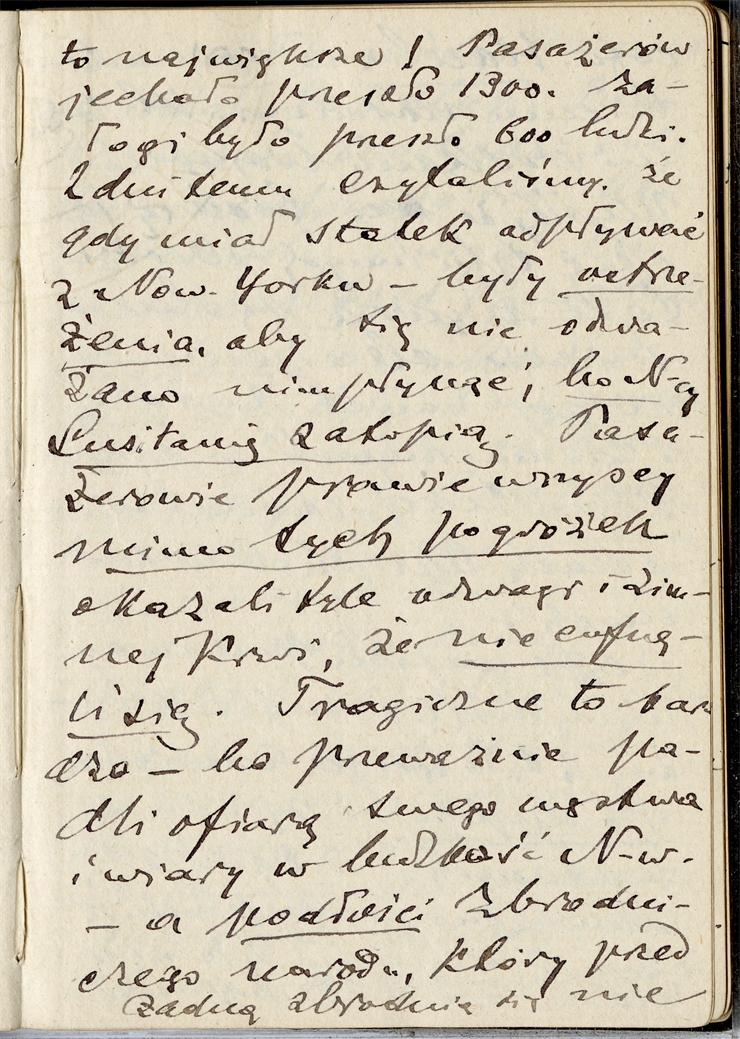 to największe! Pasażerów
jechało przeszło 1300. Za-
łogi było przeszło 600 ludzi.
2 dni temu czytaliśmy, że
gdy miał statek odpływać
z New-Yorku – były ostrze-
żenia, aby się nie odwa-
żano nim płynąć, bo N-cy
Lusitanię zatopią. Pasa-
żerowie prawie wszyscy
mimo tych pogróżek
okazali tyle odwagi i zim-
nej krwi, że nie cofnę-
li się. Tragiczne to bar
dzo – bo przeważnie pa-
dli ofiarą swego męstwa
i wiary w ludzkość N-w.
– a podłości zbrodni-
czego narodu, który przed
żadną zbrodnią się nie